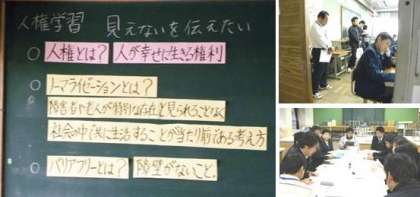 人権学習 見えないを伝えたい
○ 人権とは? 人が幸せに生きる権利
○ ノーマライゼーションとは?
障害者や老人が特別な存在と見られることなく
社会の中で共に生活することが当たり前である考え方
○ バリアフリーとは? 障壁がないこと。